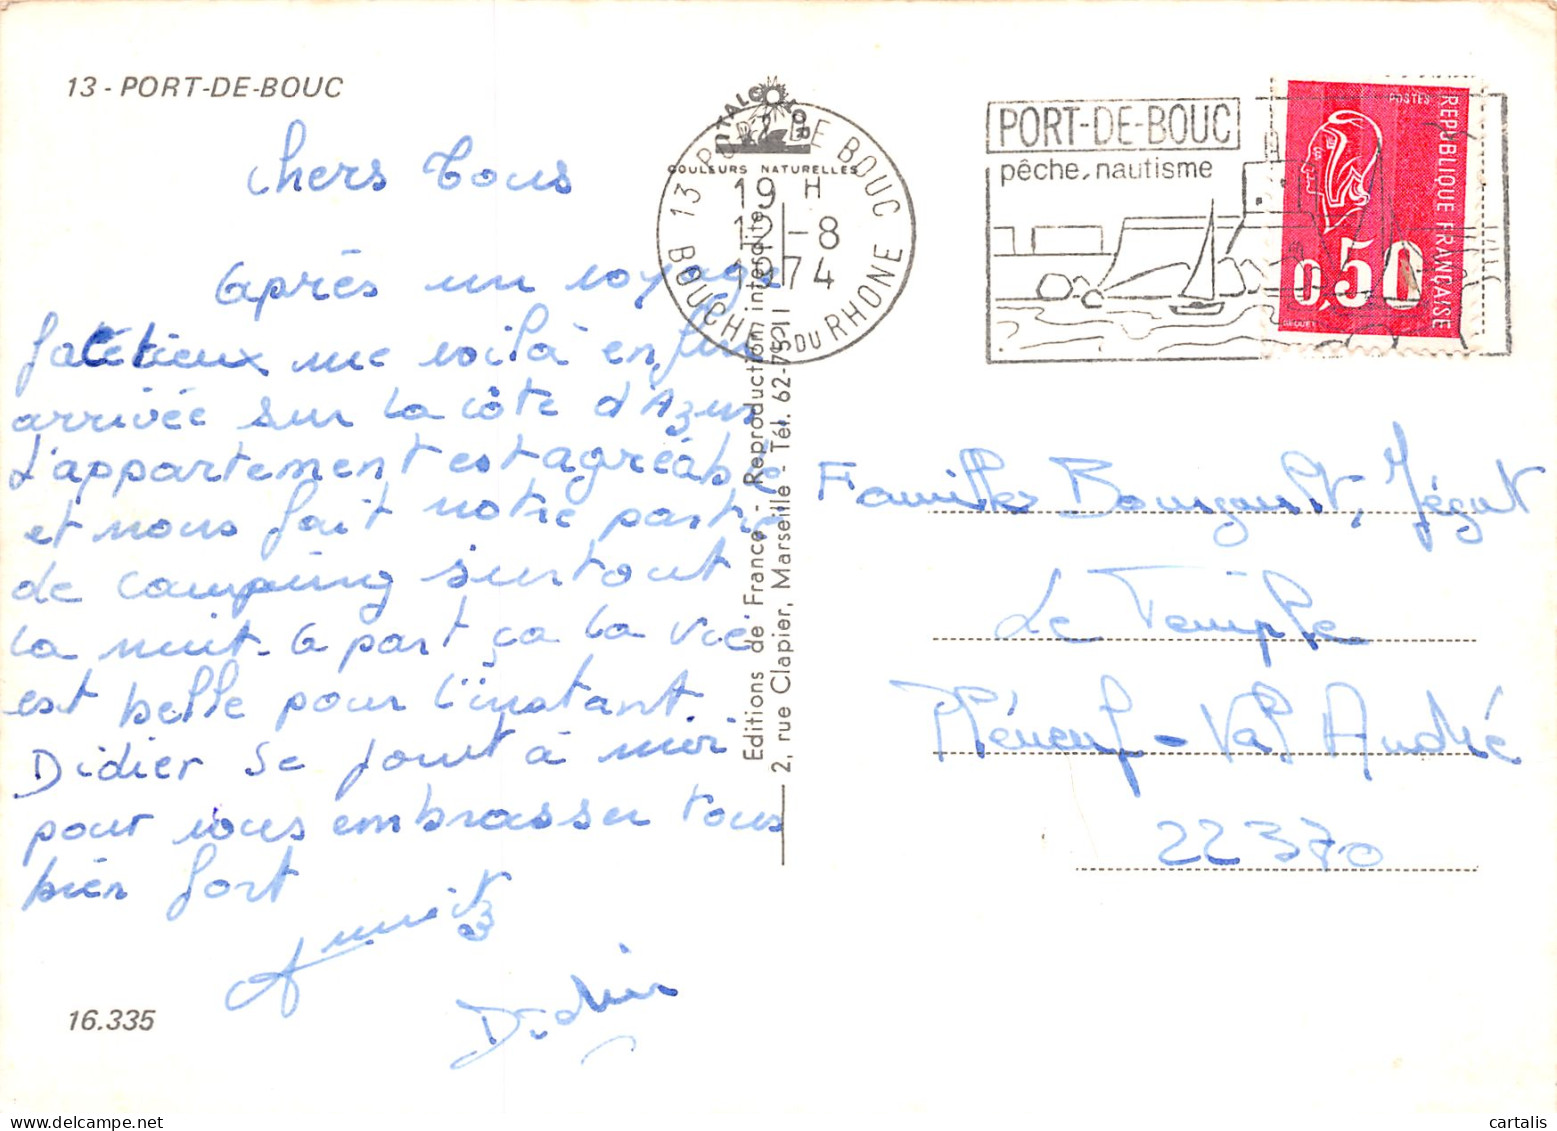 13 - PORT-DE-BOUC
Chers Tous
Après un voyage
me voilà enfin
arrivée sur la côte d'Azur
L'appartement est agréable
et nous fait notre partie
de camping surtout
la nuit. A part ça la vie
est belle pour l'instant.
Didier se joint à moi
pour vous embrasser tous
bien fort
Didier
16.335
ITALCOLOR
COULEURS NATURELLES
13 PORT DE BOUC
19 H
12 -8
1974
BOUCHES DU RHONE
Editions de France - Reproduction interdite
2, rue Clapier, Marseille - Tél. 62-75-11
PORT-DE-BOUC
pêche, nautisme
POSTES
REPUBLIQUE FRANÇAISE
0,50
Familles Bourgault, Jégut
Le Temple
Pléneuf-Val André
22370
cartalis